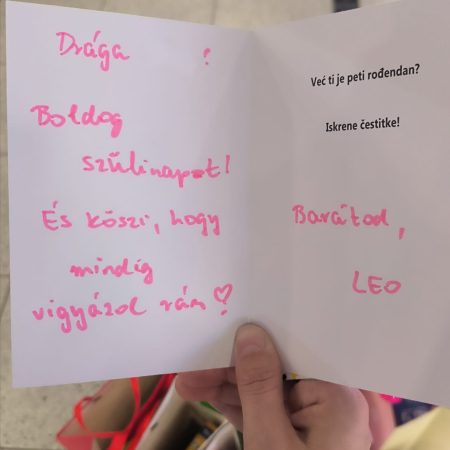 Drága !
Boldog
szülinapot!
És köszi, hogy
mindig
vigyázol rám ♡
Već ti je peti rođendan?
Iskrene čestitke!
Barátod,
LEO